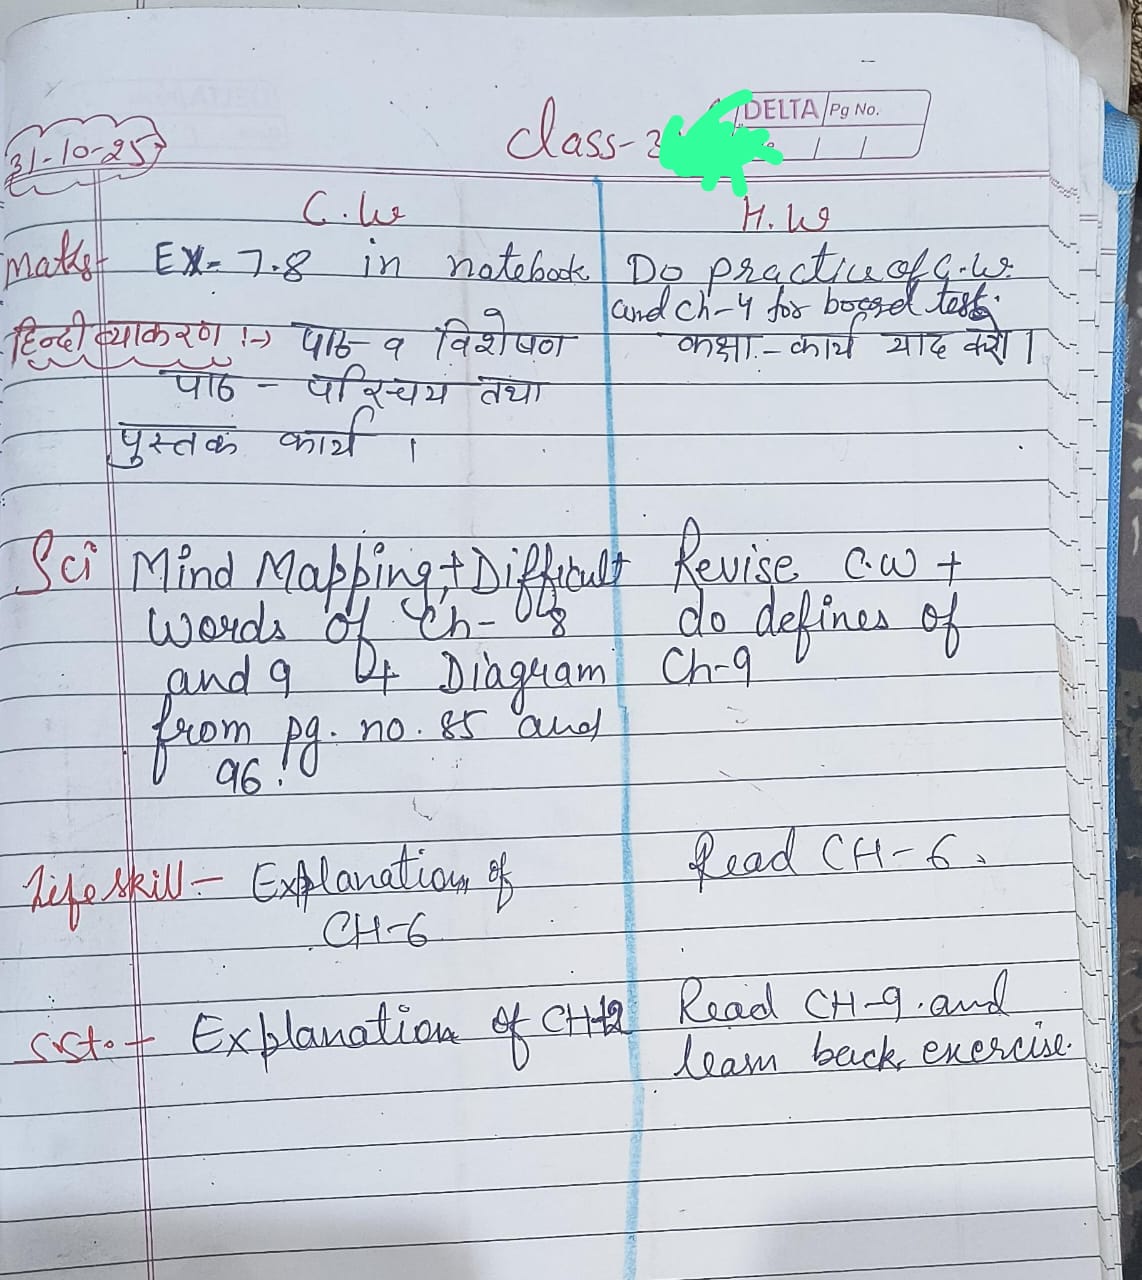 DELTA Pg No.
31-10-25
Class-3
C.W H.W
Maths- Ex- 7.8 in notebook Do practice of C.W.
and ch-4 for board test.
हिन्दी व्याकरण :-> पाठ- ९ विशेषण कक्षा - कार्य याद करो।
पाठ - परिचय तथा
पुस्तक कार्य ।
Sci Mind Mapping + Difficult Revise C.W +
Words of Ch- 8 do defines of
and 9 + Diagram Ch-9
from pg. no. 85 and
96.
Life skill - Explanation of Read CH-6.
CH-6
S.St. - Explanation of CH-12 Read CH-9 and
learn back exercise.